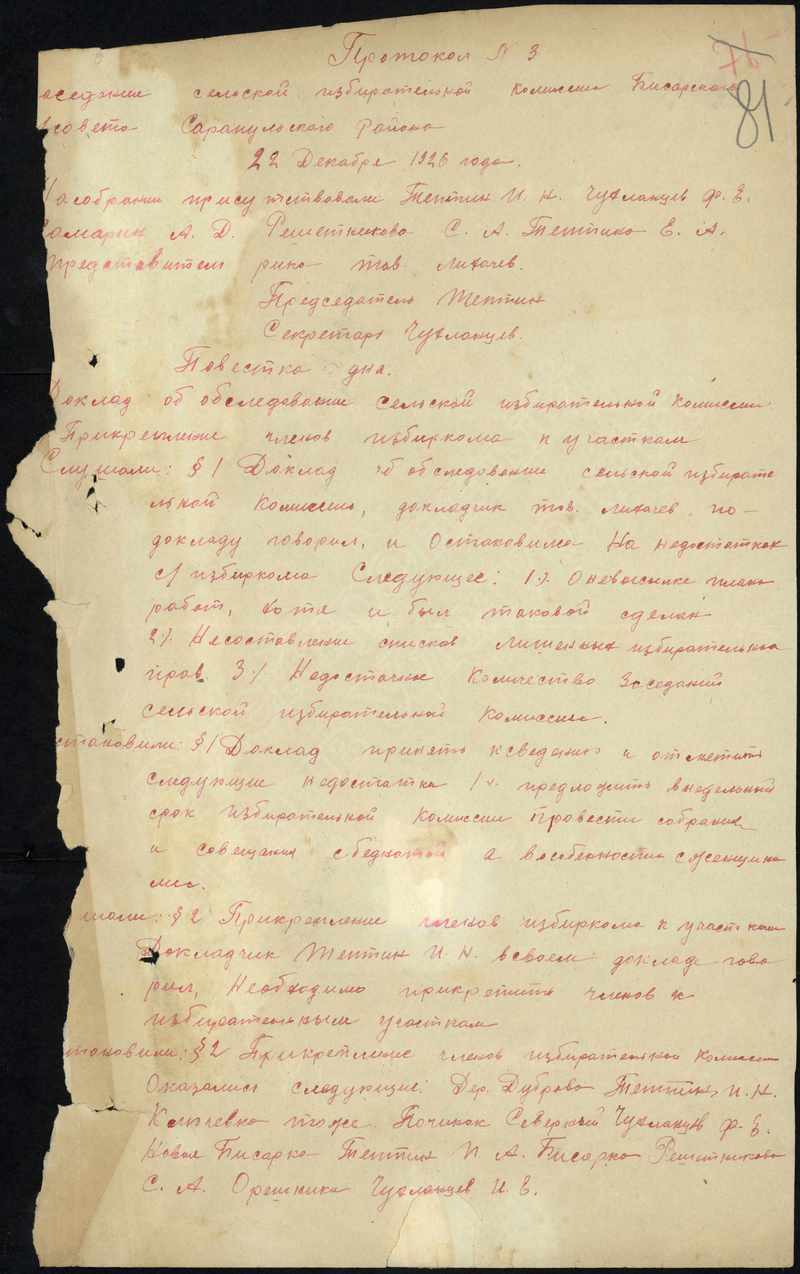 Протокол № 3
81
аседание сельской избирательной комиссии Бисарского
совета Сарапульского Района
22 Декабря 1926 года.
На собрании присутствовали Тептин И. Н. Чухланцев Ф. Е.
амарин А. Д. Решетникова С. А. Тептина Е. А.
Представитель рика тов Лихачев.
Председатель Тептин
Секретарь Чухланцев.
Повестка дня.
Доклад об обследование сельской избирательной комиссии
Прикрепление членов избиркома к участкам
Слушали: § 1 Доклад об обследование сельской избирате
льной комиссии, докладчик тов. Лихачев. по-
докладу говорил, и Остановился На недостатках
с/избиркома Следующее: 1) О невысылке плана
работ, хотя и был таковой сделан
2) Несоставление списков лишенных избирательных
прав. 3) Недостачное Количество Заседаний
сельской избирательной комиссии.
становили: § 1 Доклад принять к сведению и отметить
следующие недостатки 1) предложить в недельный
срок избирательной комиссии провести собрания
и совещания с беднотой а в особенности с женщина
ми.
шали: § 2 Прикрепление членов избиркома к участкам
Докладчик Тептин И. Н. в своем докладе гово
рил, Необходимо прикрепить членов к
избирательным участкам
тановили: § 2 Прикрепление членов избирательной комиссии
Оказались следующие: Дер. Дуброва Тептин И. Н.
Ключевка тоже. Починок Северный Чухланцев Ф. Е.
Новая Бисарка Тептин И. А. Бисарка Решетникова
С. А. Орешники Чухланцев И. Е.